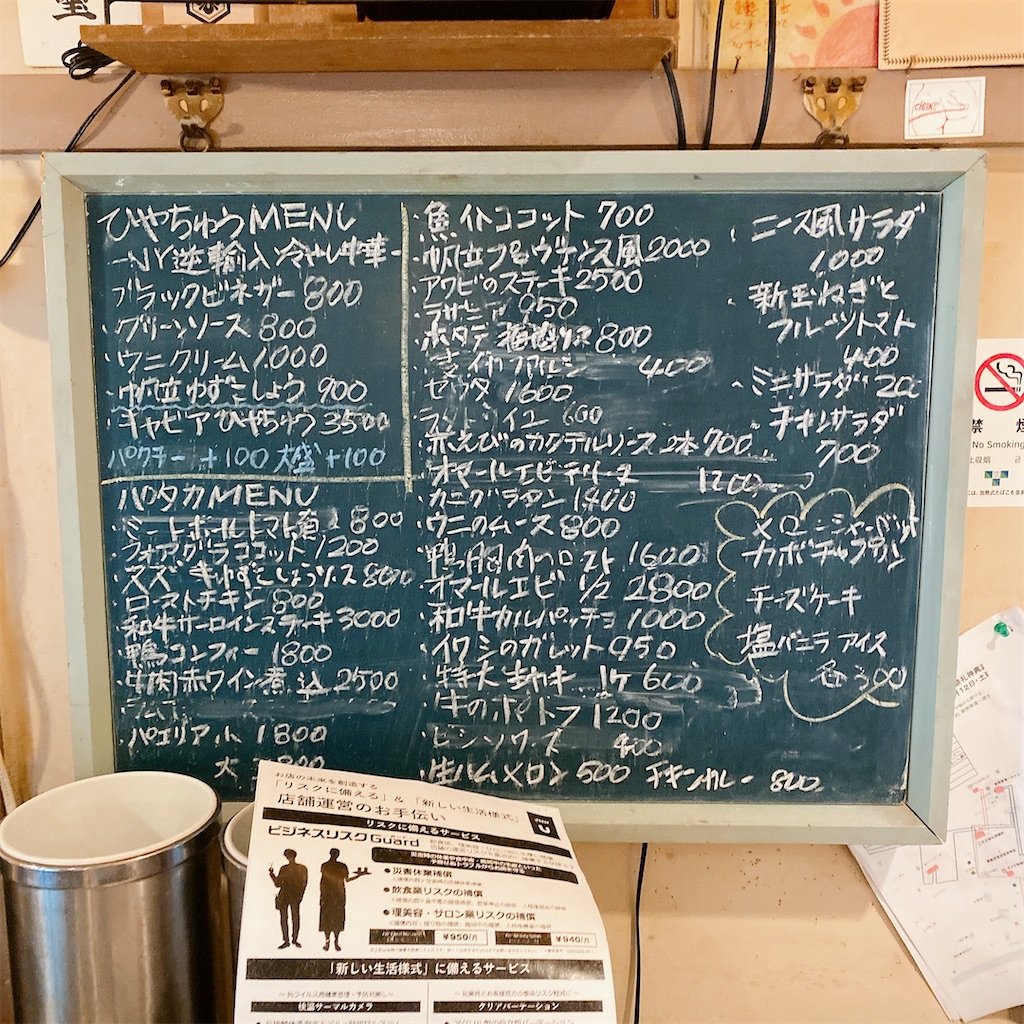 ひやちゅうMENU
-NY逆輸入冷やし中華-
ブラックビネガー 800
・グリーンソース 800
・ウニクリーム 1000
・帆立ゆずこしょう 900
・キャビアひやちゅう 3500
パクチー +100 大盛 +100
ハタカMENU
・ミートボールトマト 800
・フォアグラココット 1200
ゆずこしょうソース 800
・ローストチキン 800
・和牛サーロインステーキ 3000
・鴨コンフィー 1800
・牛肉赤ワイン煮込 2500
・パエリア 小 1800
大
・魚介ココット 700
・帆立プロヴァンス風 2000
・アワビのステーキ 2500
ラザニア 950
・ホタテ 800
400
ゼウダ 1600
600
・赤えびのカクテルソース 2本 700
オマールエビテリーヌ 1200
・カニグラタン 1400
・ウニのムース 800
・鴨胸肉ロースト 1600
・オマールエビ 1/2 2800
・和牛カルパッチョ 1000
・イワシのガレット 950
・特大生ガキ 1ケ 600
・牛のポトフ 1200
・ビシソワーズ
・生ハムメロン 500 チキンカレー 800
・ニース風サラダ
1000
・新玉ねぎと
フルーツトマト
400
・ミニサラダ 200
チキンサラダ
700
メローンシャーベット
カボチャプリン
チーズケーキ
塩バニラアイス
各300
禁煙
No Smoking
お店の未来を創造する
「リスクに備える」&「新しい生活様式」
店舗運営のお手伝い
リスクに備えるサービス
ビジネスリスクGuard
●災害休業補償
●飲食業リスクの補償
●理美容・サロン業リスクの補償
¥950/月 ¥940/月
「新しい生活様式」に備えるサービス
検温サーマルカメラ クリアパーテーション